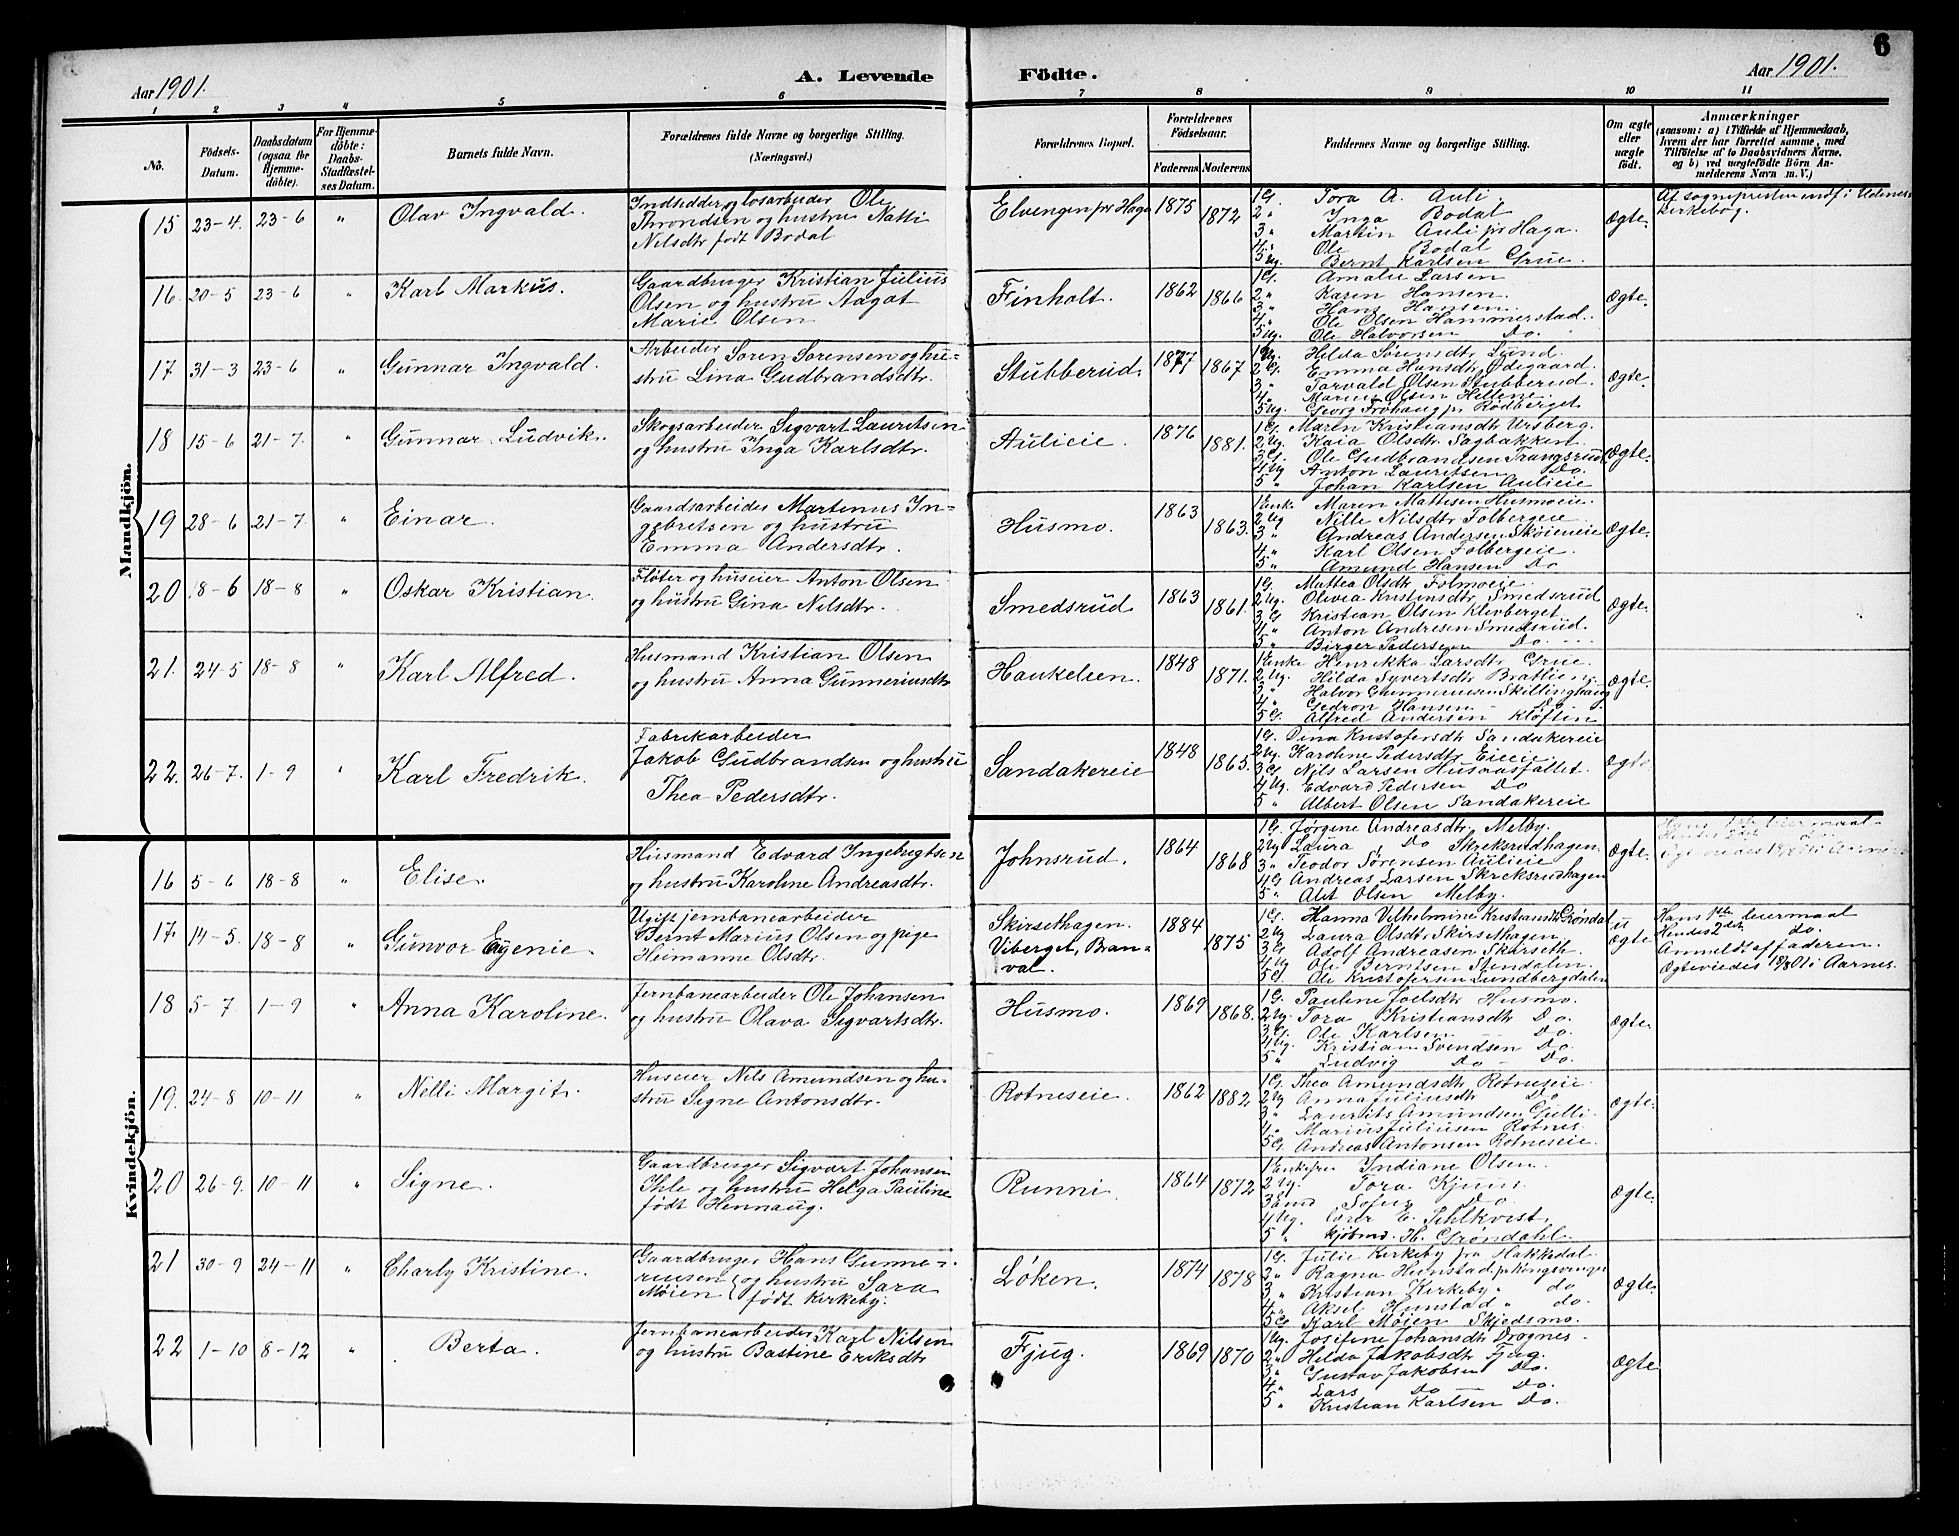 6
Aar 1901.
A. Levende Födte.
Aar 1901.
1 2 3 4 5 6 7 8 9 10 11
No.
Födsels-
Datum.
Daabsdatum
(ogsaa for
Hjemme-
döbte).
For Hjemme-
döbte:
Daabs-
Stadfæstel-
ses Datum.
Barnets fulde Navn.
Forældrenes fulde Navne og borgerlige Stilling.
(Næringsvei.)
Forældrenes Bopæl.
Forældrenes
Födselsaar.
Faderens Moderens
Faddernes Navne og borgerlige Stilling.
Om ægte
eller
uægte
födt.
Anmærkninger
(saasom: a) i Tilfælde af Hjemmedaab,
hvem der har forrettet samme, med
Tilföielse af to Daabsvidners Navne,
og b) ved uægtefödte Börn An-
melderens Navn m. V.)
Mandkjön.
15 23-4. 23-6 " Olav Ingvald.
Indsidder og løsarbeider Ole
Throndsen og hustru Natti
Nilsdtr født Bodal
Elvengen pr Haga 1875 1872
1 G. Tora A. Auli.
2 " Inga Bodal
3 " Martin Auli pr Haga.
4 " Ole Bodal
5 Ug. Bernt Karlsen Grue.
Ægte.
Af sognepresten indf i Udenes
kirkebog.
16. 20-5 23-6 " Karl Markus.
Gaardbruger Kristian Julius
Olsen og hustru Aagot
Marie Olsen
Finholt. 1862 1866
1 G. Amalie Larsen
2 " Karen Hansen.
3 " Hans Hansen.
4 " Ole Olsen Hammerstad.
5 Ug. Ole Halvorsen Do.
Ægte.
17. 31-3 23-6 " Gunnar Ingvald.
Arbeider Søren Sørensen og hu-
stru Lina Gudbrandsdtr.
Stubberud. 1877 1867
1 Ug. Hilda Sørensdtr Lund.
2 G. Emma Hansdtr Ødegaard.
3 " Torvald Olsen Stubberud.
4 " Marius Olsen Hellene.
5 Ug. Georg Frøhaug pr Rødberget
Ægte.
18 15-6 21-7. " Gunnar Ludvik.
Skogsarbeider Sigvart Lauritsen
og hustru Inga Karlsdtr.
Aulieie. 1876 1881.
1 G. Maren Kristiansdtr Ursberg.
2 Ug. Kaia Olsdtr Sagbakken.
3 G. Ole Gudbrandsen Trangsrud
4 Ug Anton Lauritsen Do.
5 " Johan Karlsen Aulieie
Ægte.
19 28-6 21-7. " Einar.
Gaardsarbeider Martenus In-
gebretsen og hustru
Emma Andersdtr.
Husmo. 1863 1863.
1 Enke Maren Mattisen Husmoeie.
2 Ug Nilli Nilsdtr Folbergeie.
3 " Andreas Andersen Skøieneie
4 " Karl Olsen Folbergeie.
5 " Amund Hansen Do
Ægte.
20 18-6 18-8 " Oskar Kristian.
Fløter og huseier Anton Olsen
og hustru Gina Nilsdtr.
Smedsrud 1863 1861.
1 G. Mattea Olsdtr Folmoeie.
2 Ug. Olivia Kristinsdtr Smedsrud
3 G Kristian Olsen Klevberget.
4 " Anton Andresen Smedsrud.
5 " Birger Pedersen Do.
Ægte.
21. 24-5 18-8 " Karl Alfred.
Husmand Kristian Olsen
og hustru Anna Gunneriusdtr
Haukeleen. 1848 1871.
1 Enke Henrikka Larsdtr Grue.
2 Ug. Hilda Syvertsdtr Brattieng.
3 " Halvor Gunneriusen Skillinghaug
4 " Gedron Hansen Do
5 G. Alfred Andersen Kløften
Ægte.
22. 26-7. 1-9 " Karl Fredrik.
Fabrekarbeider
Jakob Gudbrandsen og hustru
Thea Pedersdtr.
Sandakereie 1848 1865.
1 G. Dina Kristofersdtr Sandakereie
2 Ug. Karoline Pedersdtr Eieie.
3 G. Nils Larsen Husaasfallet.
4 Ug. Edvard Pedersen Do
5 " Albert Olsen Sandakereie
Ægte.
Kvindekjön.
16 5-6 18-8 " Elise.
Husmand Edvard Ingebregtsen
og hustru Karoline Andreasdtr.
Johnsrud. 1864 1868
1 G. Jørgine Andreasdtr Melby.
2 Ug Laura Do Skreksrudhagen.
3 " Teodor Sørensen Aulieie
4 G Andreas Larsen Skreksrudhagen
5 " Alet Olsen Melby.
Ægte.
17. 14-5. 18-8 " Gunvor Egenie.
Ugift jernbanearbeider
Bernt Marius Olsen og pige
Heimanne Olsdtr.
Skirsethagen.
Viberget, Bran-
val.
1884 1875
1 G. Hanna Vilhelmine Kristiansdtr Grøndal
2 Ug Laura Olsdtr Skirsethagen.
3 G. Adolf Andreasen Skarseth.
4 Ug Ole Berntsen Stendalen.
5 G. Ole Kristofersen Lundbergdalen
u
ægte
Hans 1ste leiermaal
Hendes 2det do.
Anmeldt af faderen.
Ægteviedes 18/8 01 i Aarnes.
18 5-7. 1-9 " Anna Karoline.
Jernbanearbeider Ole Johansen
og hustru Olava Sigvartsdtr.
Husmo. 1869 1868.
1 G. Pauline Joelsdtr Husmo.
2 Ug. Tora Kristiansdtr Do.
3 G. Ole Karlsen Do.
4 Ug. Kristian Svendsen Do
5 " Ludvig Do Do.
Ægte.
19. 24-8 10-11 " Nelli Margit.
Huseier Nils Amundsen og hu-
stru Signe Antonsdtr.
Rotneseie. 1862 1882
1 G. Thea Amundsdtr Rotneseie
2 Ug Anna Juliusdtr Do
3 " Laurits Amundsen Gjelli.
4 " Marius Juliusen Rotnes.
5 G. Andreas Antonsen Rotneseie.
Ægte.
20 26-9. 10-11 " Signe.
Gaardbruger Sigvart Johansen
Ihle og hustru Helga Pauline
født Hennaug.
Runni. 1864 1872
1 Enkefru Indiane Olsen.
2 Ug. Tora Kjuus.
3 Do.
4 Ug. E. Sehlkvist.
5 " Kjøbmd. H. Grøndahl.
Ægte.
21 30-9 24-11 " Charly Kristine.
Gaardbruger Hans Gunne-
riusen og hustru Sara
Møien født Kirkeby.
Løken. 1874 1878
1 G. Julie Kirkeby fra Hakkedal.
2 " Ragna Hunstad pr Kongsvinger
3 " Kristian Kirkeby " do
4 " Aksel Hunstad " do.
5 G Karl Møien Skjedsmo.
Ægte.
22 1-10 8-12 " Berta.
Jernbanearbeider Karl Nilsen
og hustru Bastine Eriksdtr
Fjug. 1869 1870
1 Ug. Josefine Johansdtr Drognes.
2 " Hilda Jakobsdtr Fjug.
3 " Gustav Jakobsen Do.
4 " Lars Do Do.
5 " Kristian Karlsen Do.
Ægte